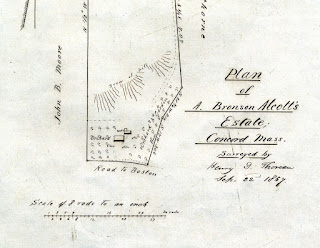 John B. Moore
Orchard
Road to Boston
Scale of 8 rods to an inch
Plan
of
A. Bronson Alcott's
Estate,
Concord Mass.
Surveyed by
Henry D. Thoreau
Sep. 22ᵈ 1857